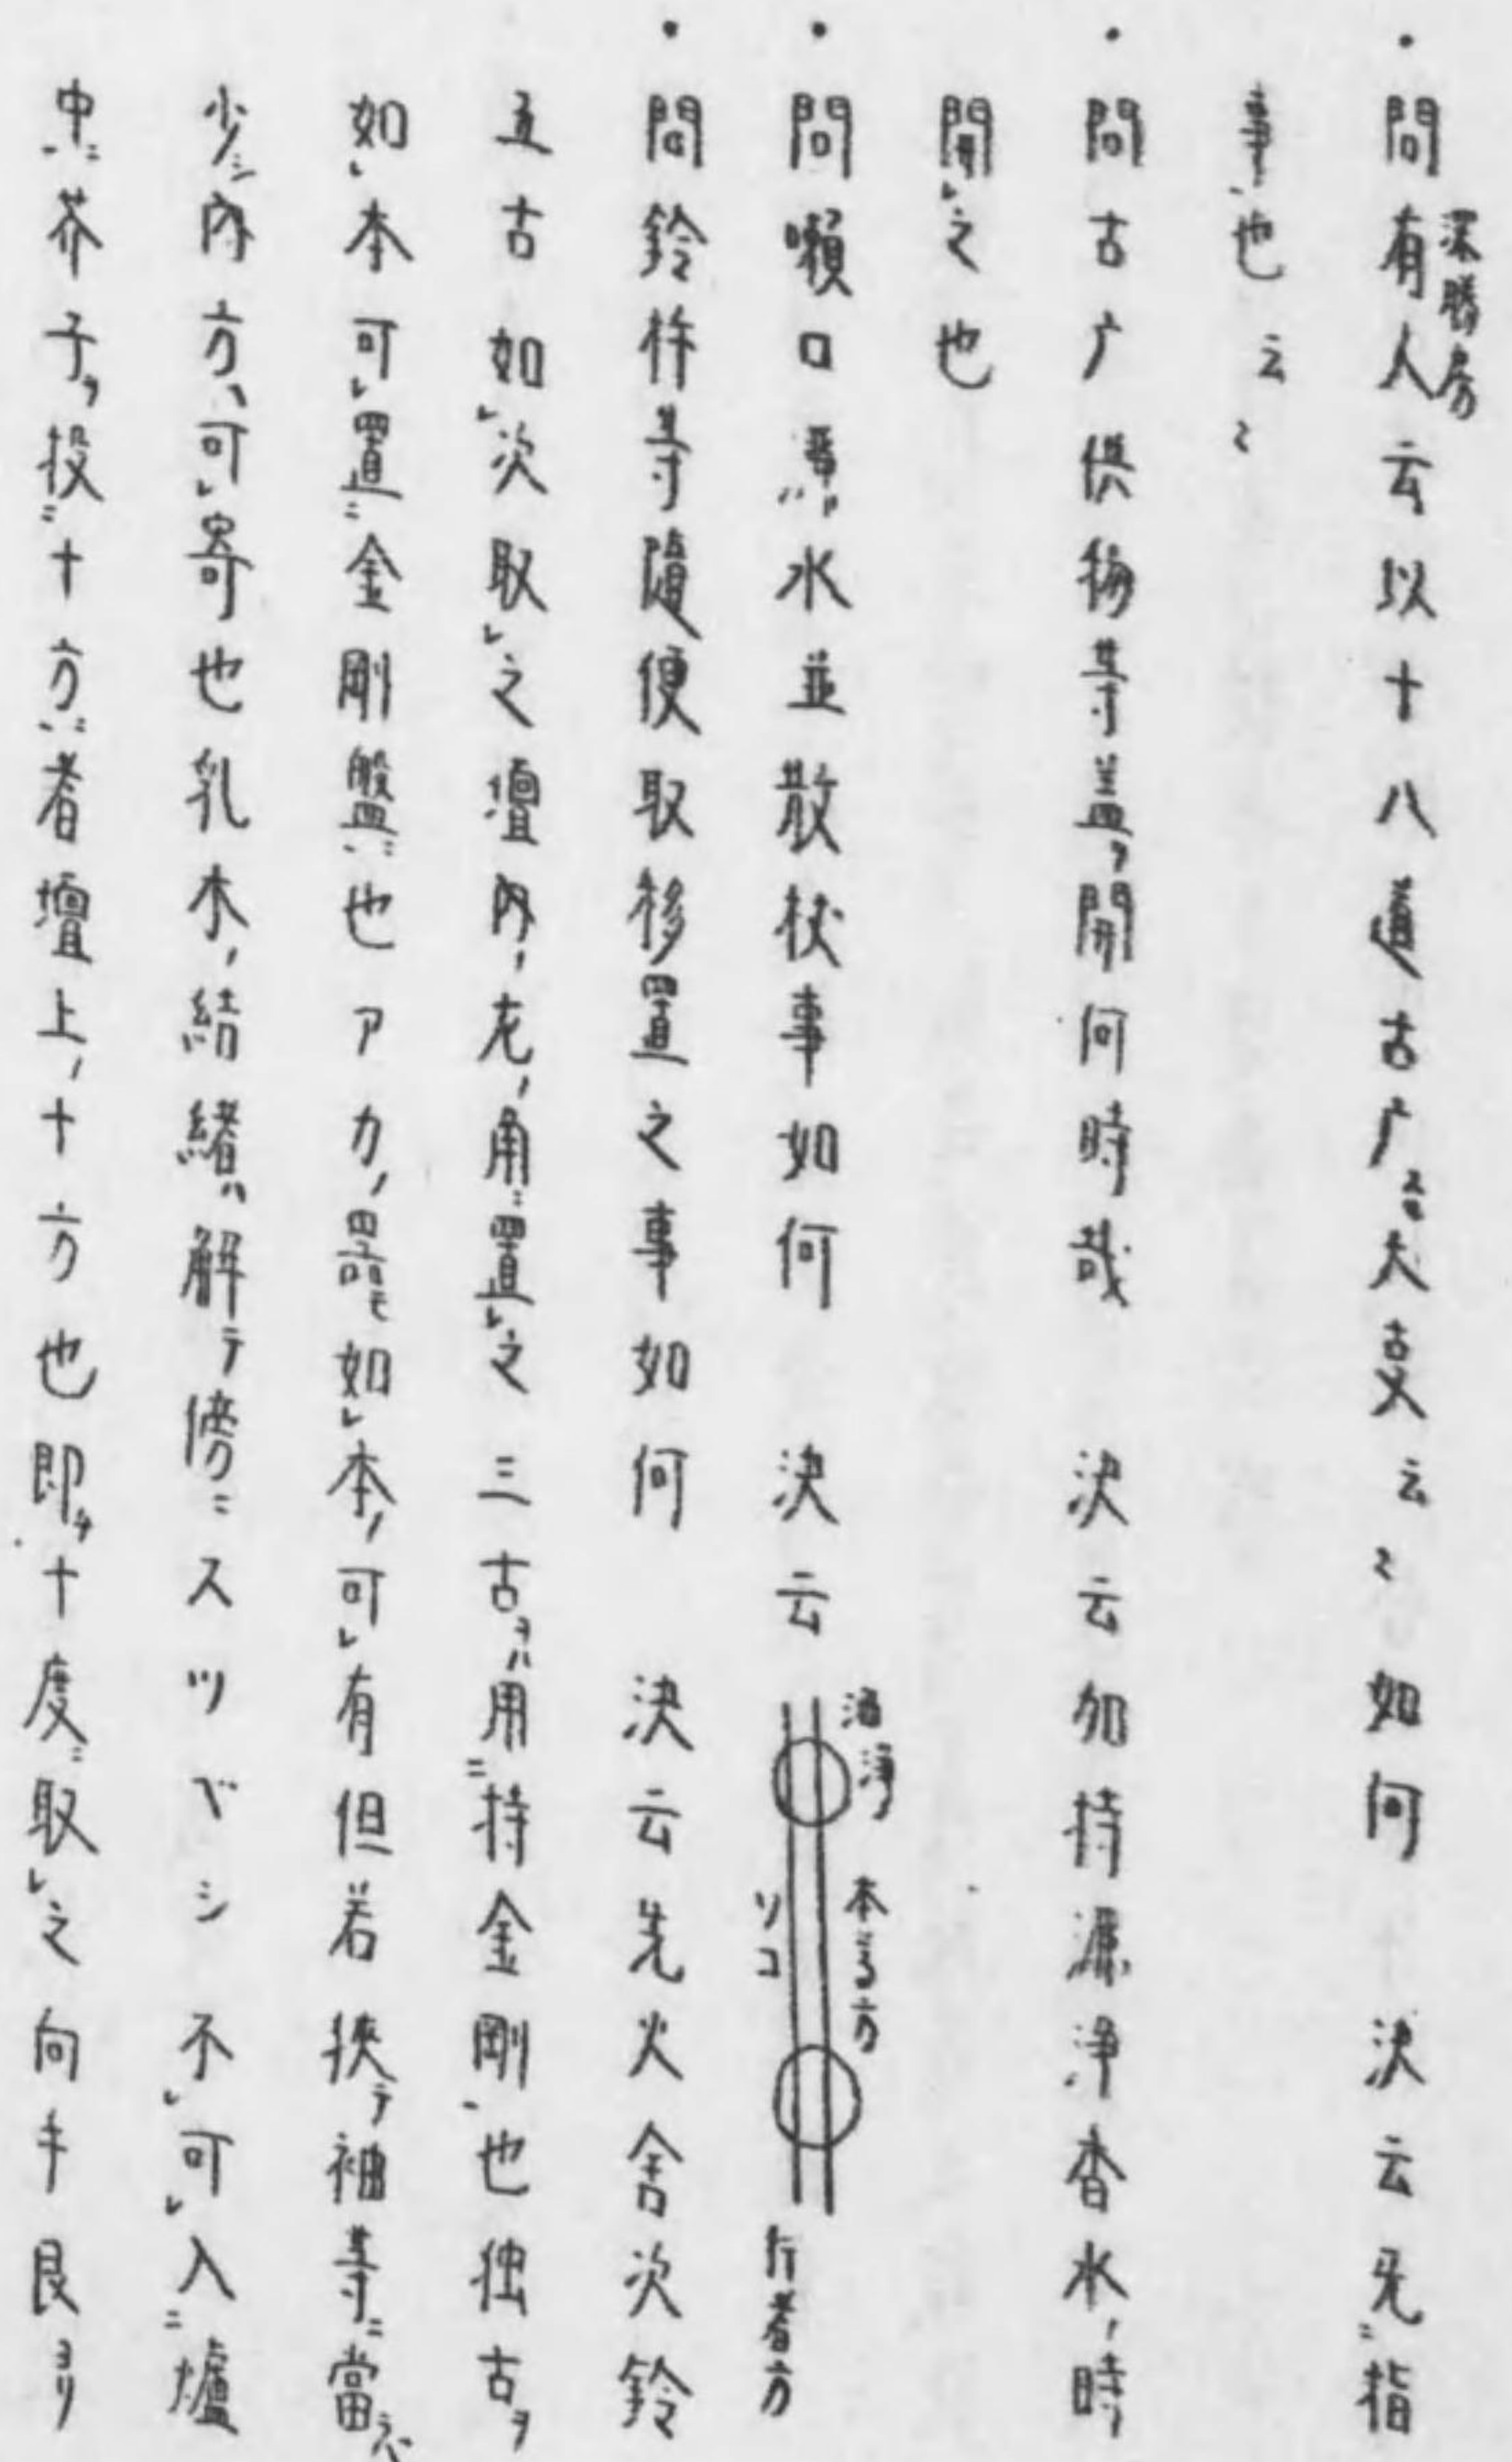 ・問有人云以十八道古广大㕝云〻如何 決云先ニ指
深勝房
事也云〻
・問古广供物等蓋ヲ開何時哉 決云加持漉浄香水ノ時
開レ之也
・問嗽口水並散杖事如何 決云
灑浄 本尊方
ソコ
行者方
・問鈴杵等随便取移置之事如何 決云先火舎次鈴
五古如レ次取レ之壇内ノ左ノ角ニ置レ之三古ヲハ用ニ持金剛也独古ヲ
如レ本可レ置ニ金剛盤ニ也アカノ器モ如レ本ノ可レ有但若狭テ袖等ニ當ラハ
少シ内方ヘ可レ寄也乳木ノ結緒ハ解テ傍ニスツベシ不レ可レ入ニ爐
中ニ芥子ヲ投ニ十方ニ者壇上ノ十方也即チ十度ニ取レ之向キ艮ヨリ